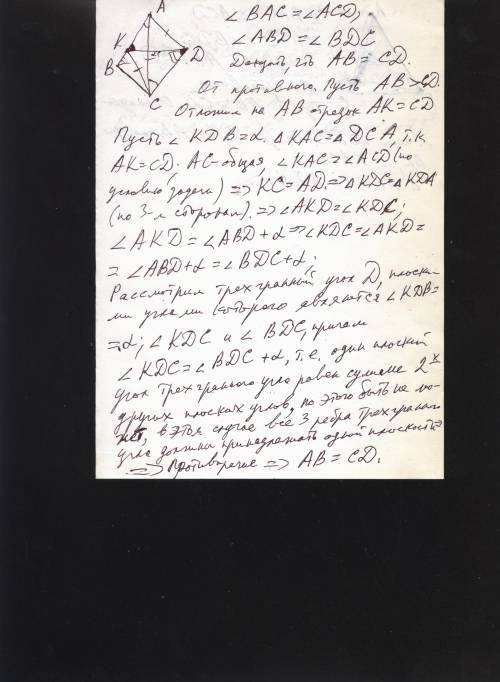 A
K
B
D
C
∠BAC = ∠ACD,
∠ABD = ∠BDC
Доказать, что AB = CD.
От противного. Пусть AB > CD.
Отложим на AB отрезок AK = CD
Пусть ∠KDB = α. ΔKAC = ΔDCA, т.к.
AK = CD. AC - общая, ∠KAC = ∠ACD (по
условию задачи) => KC = AD. => ΔKDC = ΔKDA
(по 3-м сторонам). => ∠AKD = ∠KDC;
∠AKD = ∠ABD + α => ∠KDC = ∠AKD =
= ∠ABD + α = ∠BDC + α;
Рассмотрим трехгранный угол D, плоски-
ми углами которого являются ∠KDB =
= α; ∠KDC и ∠BDC, причем
∠KDC = ∠BDC + α, т.е. один плоский
угол трехгранного угла равен сумме 2х
других плоских углов, но этого быть не мо-
жет, в этом случае все 3 ребра трехгранного
угла должны принадлежать одной плоскости =>
=> Противоречие => AB = CD.